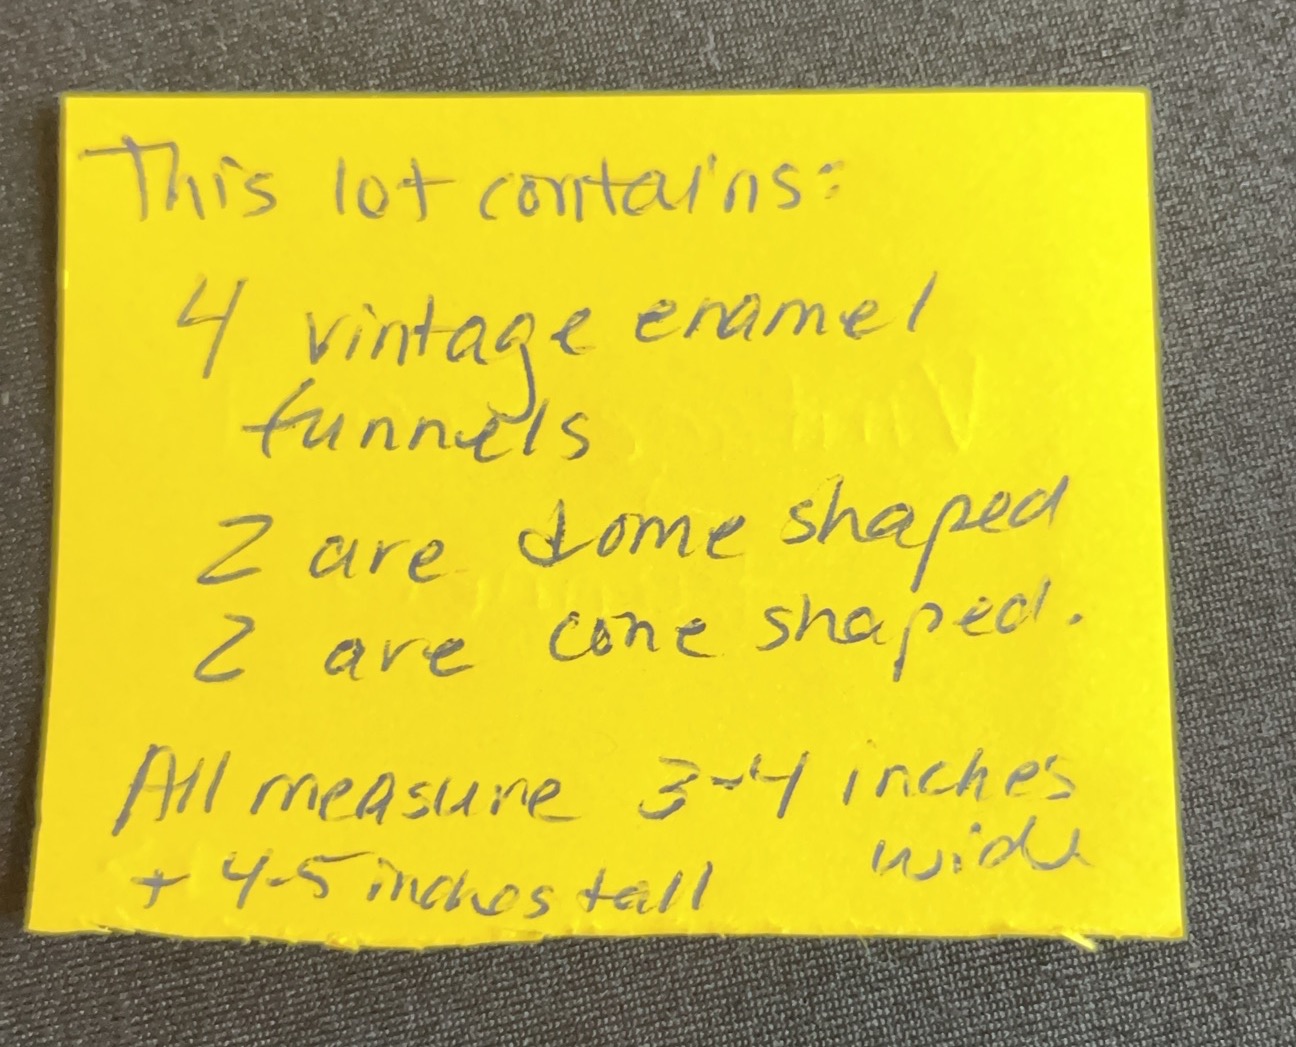 This lot contains:
4 vintage enamel
funnels
2 are dome shaped
2 are cone shaped.
All measure 3-4 inches
wide
+ 4-5 inches tall